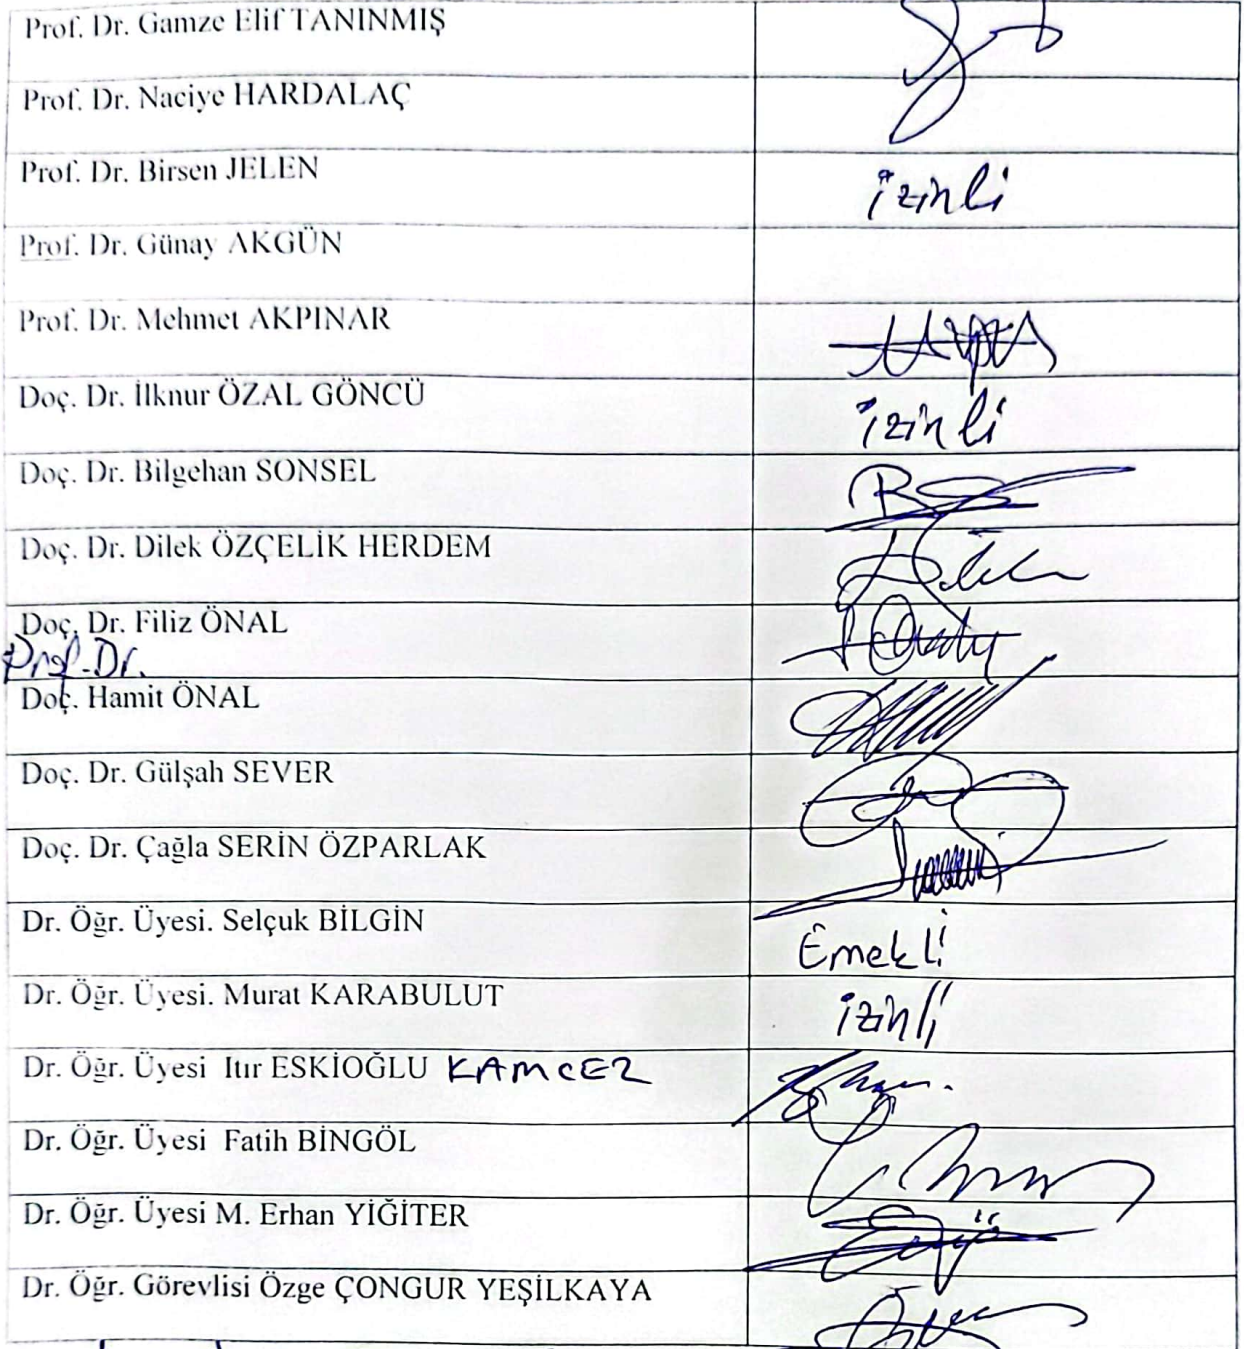 Prof. Dr. Gamze Elif TANINMIŞ
Prof. Dr. Naciye HARDALAÇ
Prof. Dr. Birsen JELEN izinli
Prof. Dr. Günay AKGÜN
Prof. Dr. Mehmet AKPINAR
Doç. Dr. İlknur ÖZAL GÖNCÜ izinli
Doç. Dr. Bilgehan SONSEL
Doç. Dr. Dilek ÖZÇELİK HERDEM
Doç. Dr. Filiz ÖNAL
Prof. Dr.
Doç. Hamit ÖNAL
Doç. Dr. Gülşah SEVER
Doç. Dr. Çağla SERİN ÖZPARLAK
Dr. Öğr. Üyesi. Selçuk BİLGİN Emekli
Dr. Öğr. Üyesi. Murat KARABULUT izinli
Dr. Öğr. Üyesi Itır ESKİOĞLU KAMCEZ
Dr. Öğr. Üyesi Fatih BİNGÖL
Dr. Öğr. Üyesi M. Erhan YİĞİTER
Dr. Öğr. Görevlisi Özge ÇONGUR YEŞİLKAYA